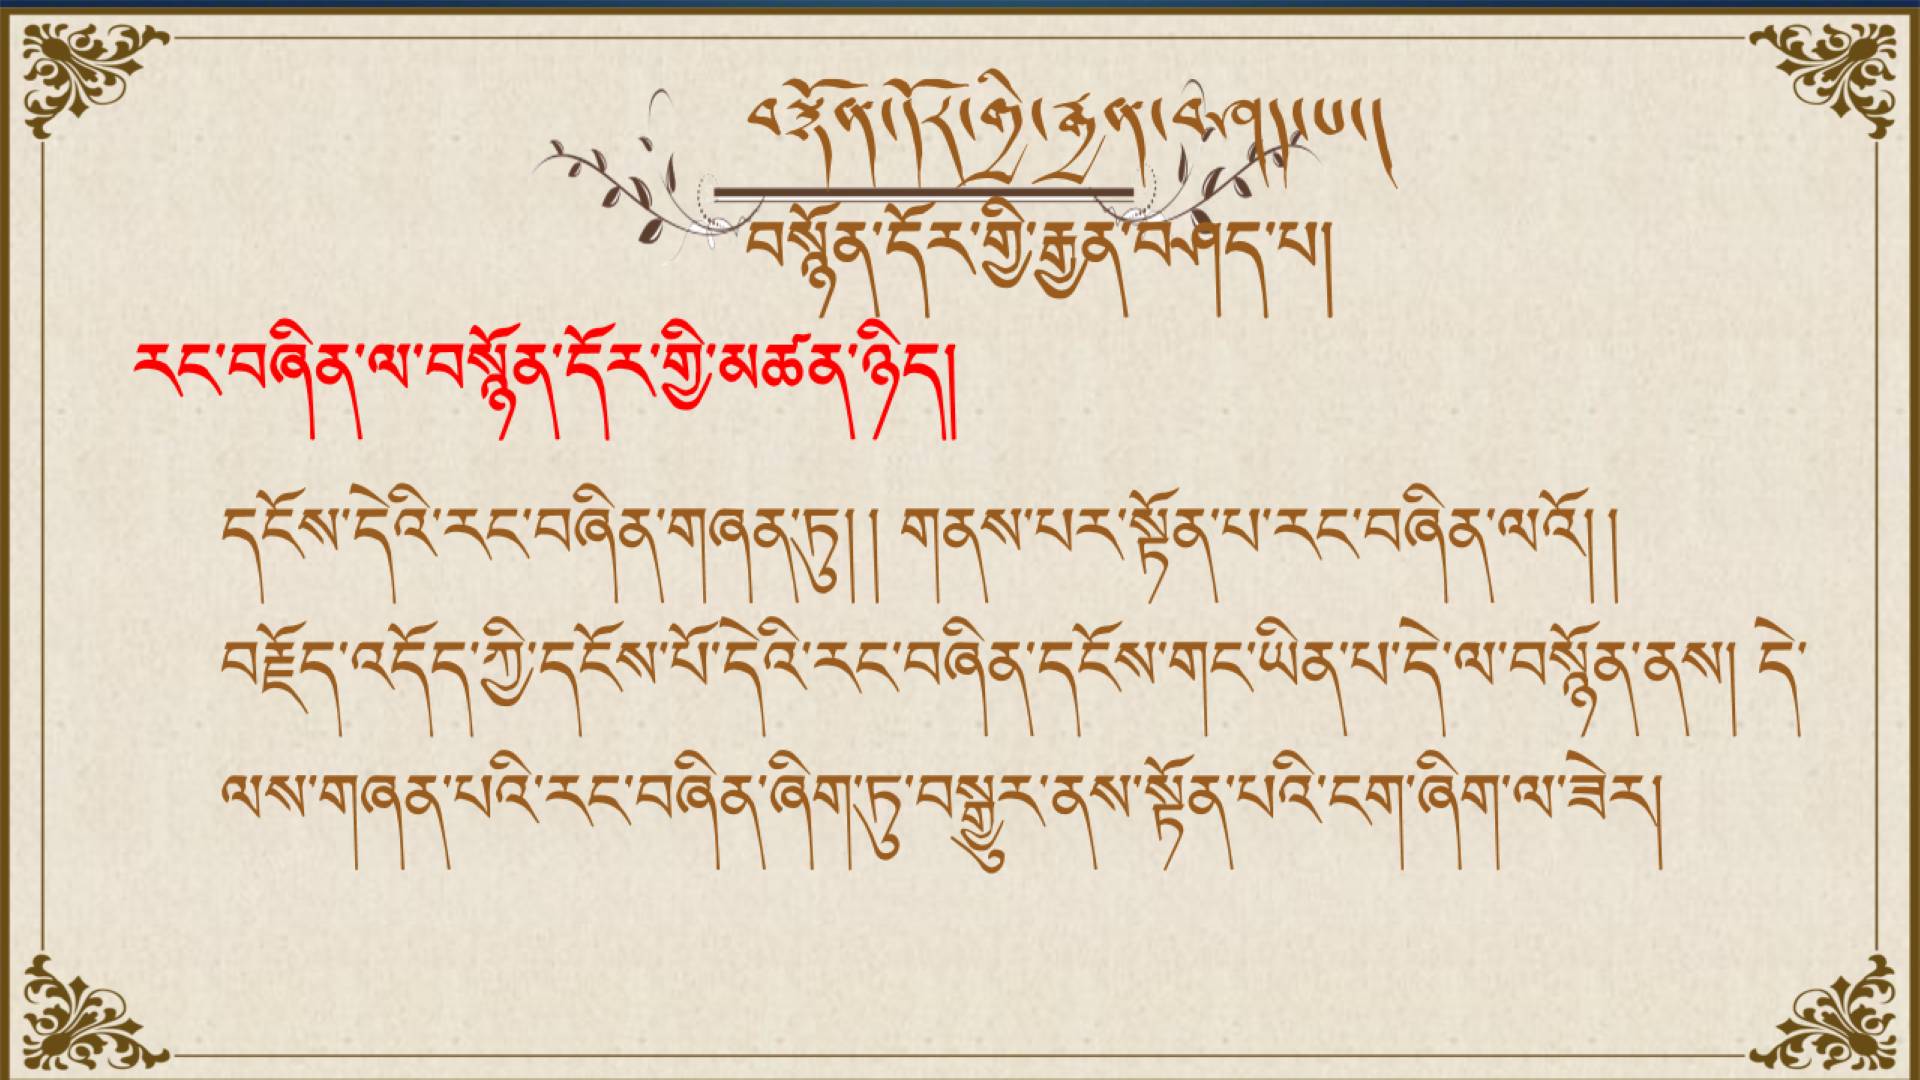 བསྙོན་དོར་གྱི་རྒྱན་བཤད་པ།
བསྙོན་དོར་གྱི་རྒྱན་བཤད་པ།
རང་བཞིན་ལ་བསྙོན་དོར་གྱི་མཚན་ཉིད།
དངོས་དེའི་རང་བཞིན་གཞན་ཏུ།། གནས་པར་སྟོན་པ་རང་བཞིན་ལའོ།།
བརྗོད་འདོད་ཀྱི་དངོས་པོ་དེའི་རང་བཞིན་དངོས་གང་ཡིན་པ་དེ་ལ་བསྙོན་ནས། དེ་
ལས་གཞན་པའི་རང་བཞིན་ཞིག་ཏུ་བསྒྱུར་ནས་སྟོན་པའི་ངག་ཞིག་ལ་ཟེར།